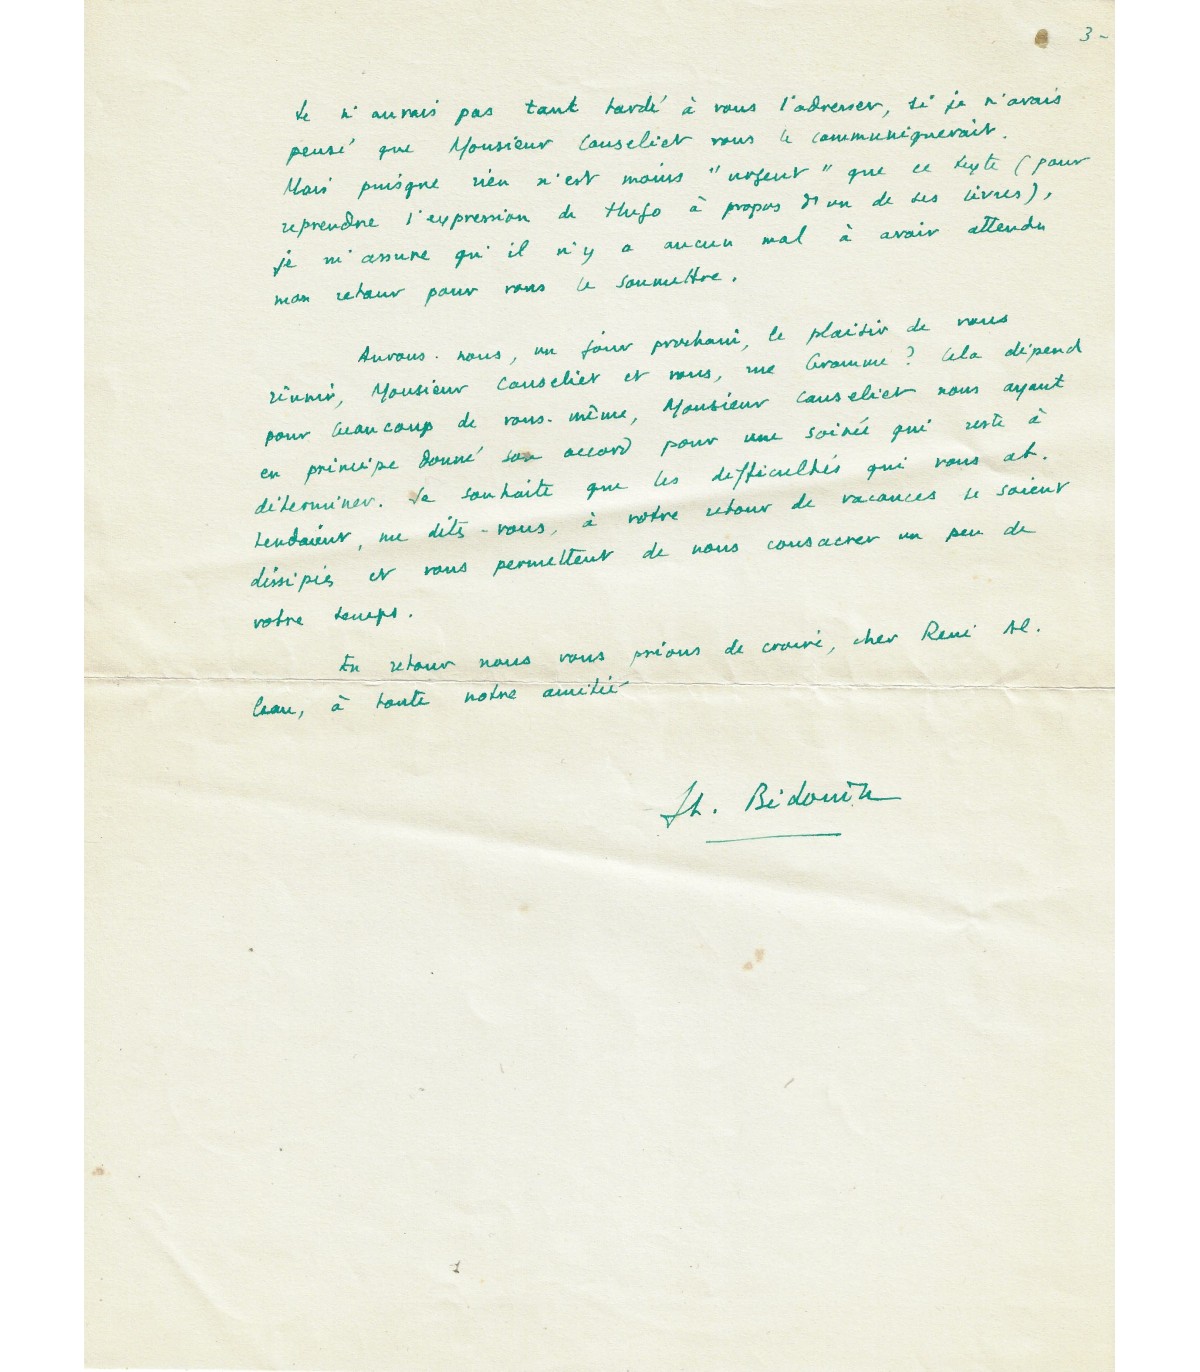 3 -
Je n'aurais pas tant tardé à vous l'adresser, si je n'avais
pensé que Monsieur Canseliet vous le communiquerait.
Mais puisque rien n'est moins "urgent" que ce texte (pour
reprendre l'expression de Hugo à propos d'un de ses livres),
je m'assure qu'il n'y a aucun mal à avoir attendu
mon retour pour vous le soumettre.
Aurons-nous, un jour prochain, le plaisir de vous
réunir, Monsieur Canseliet et vous, rue Gramme ? Cela dépend
pour beaucoup de vous-même, Monsieur Canseliet nous ayant
en principe donné son accord pour une soirée qui reste à
déterminer. Je souhaite que les difficultés qui vous at-
tendaient, me dites-vous, à votre retour de vacances se soient
dissipées et vous permettent de nous consacrer un peu de
votre temps.
En retour nous vous prions de croire, cher René Al-
leau, à toute notre amitié
Bédouin